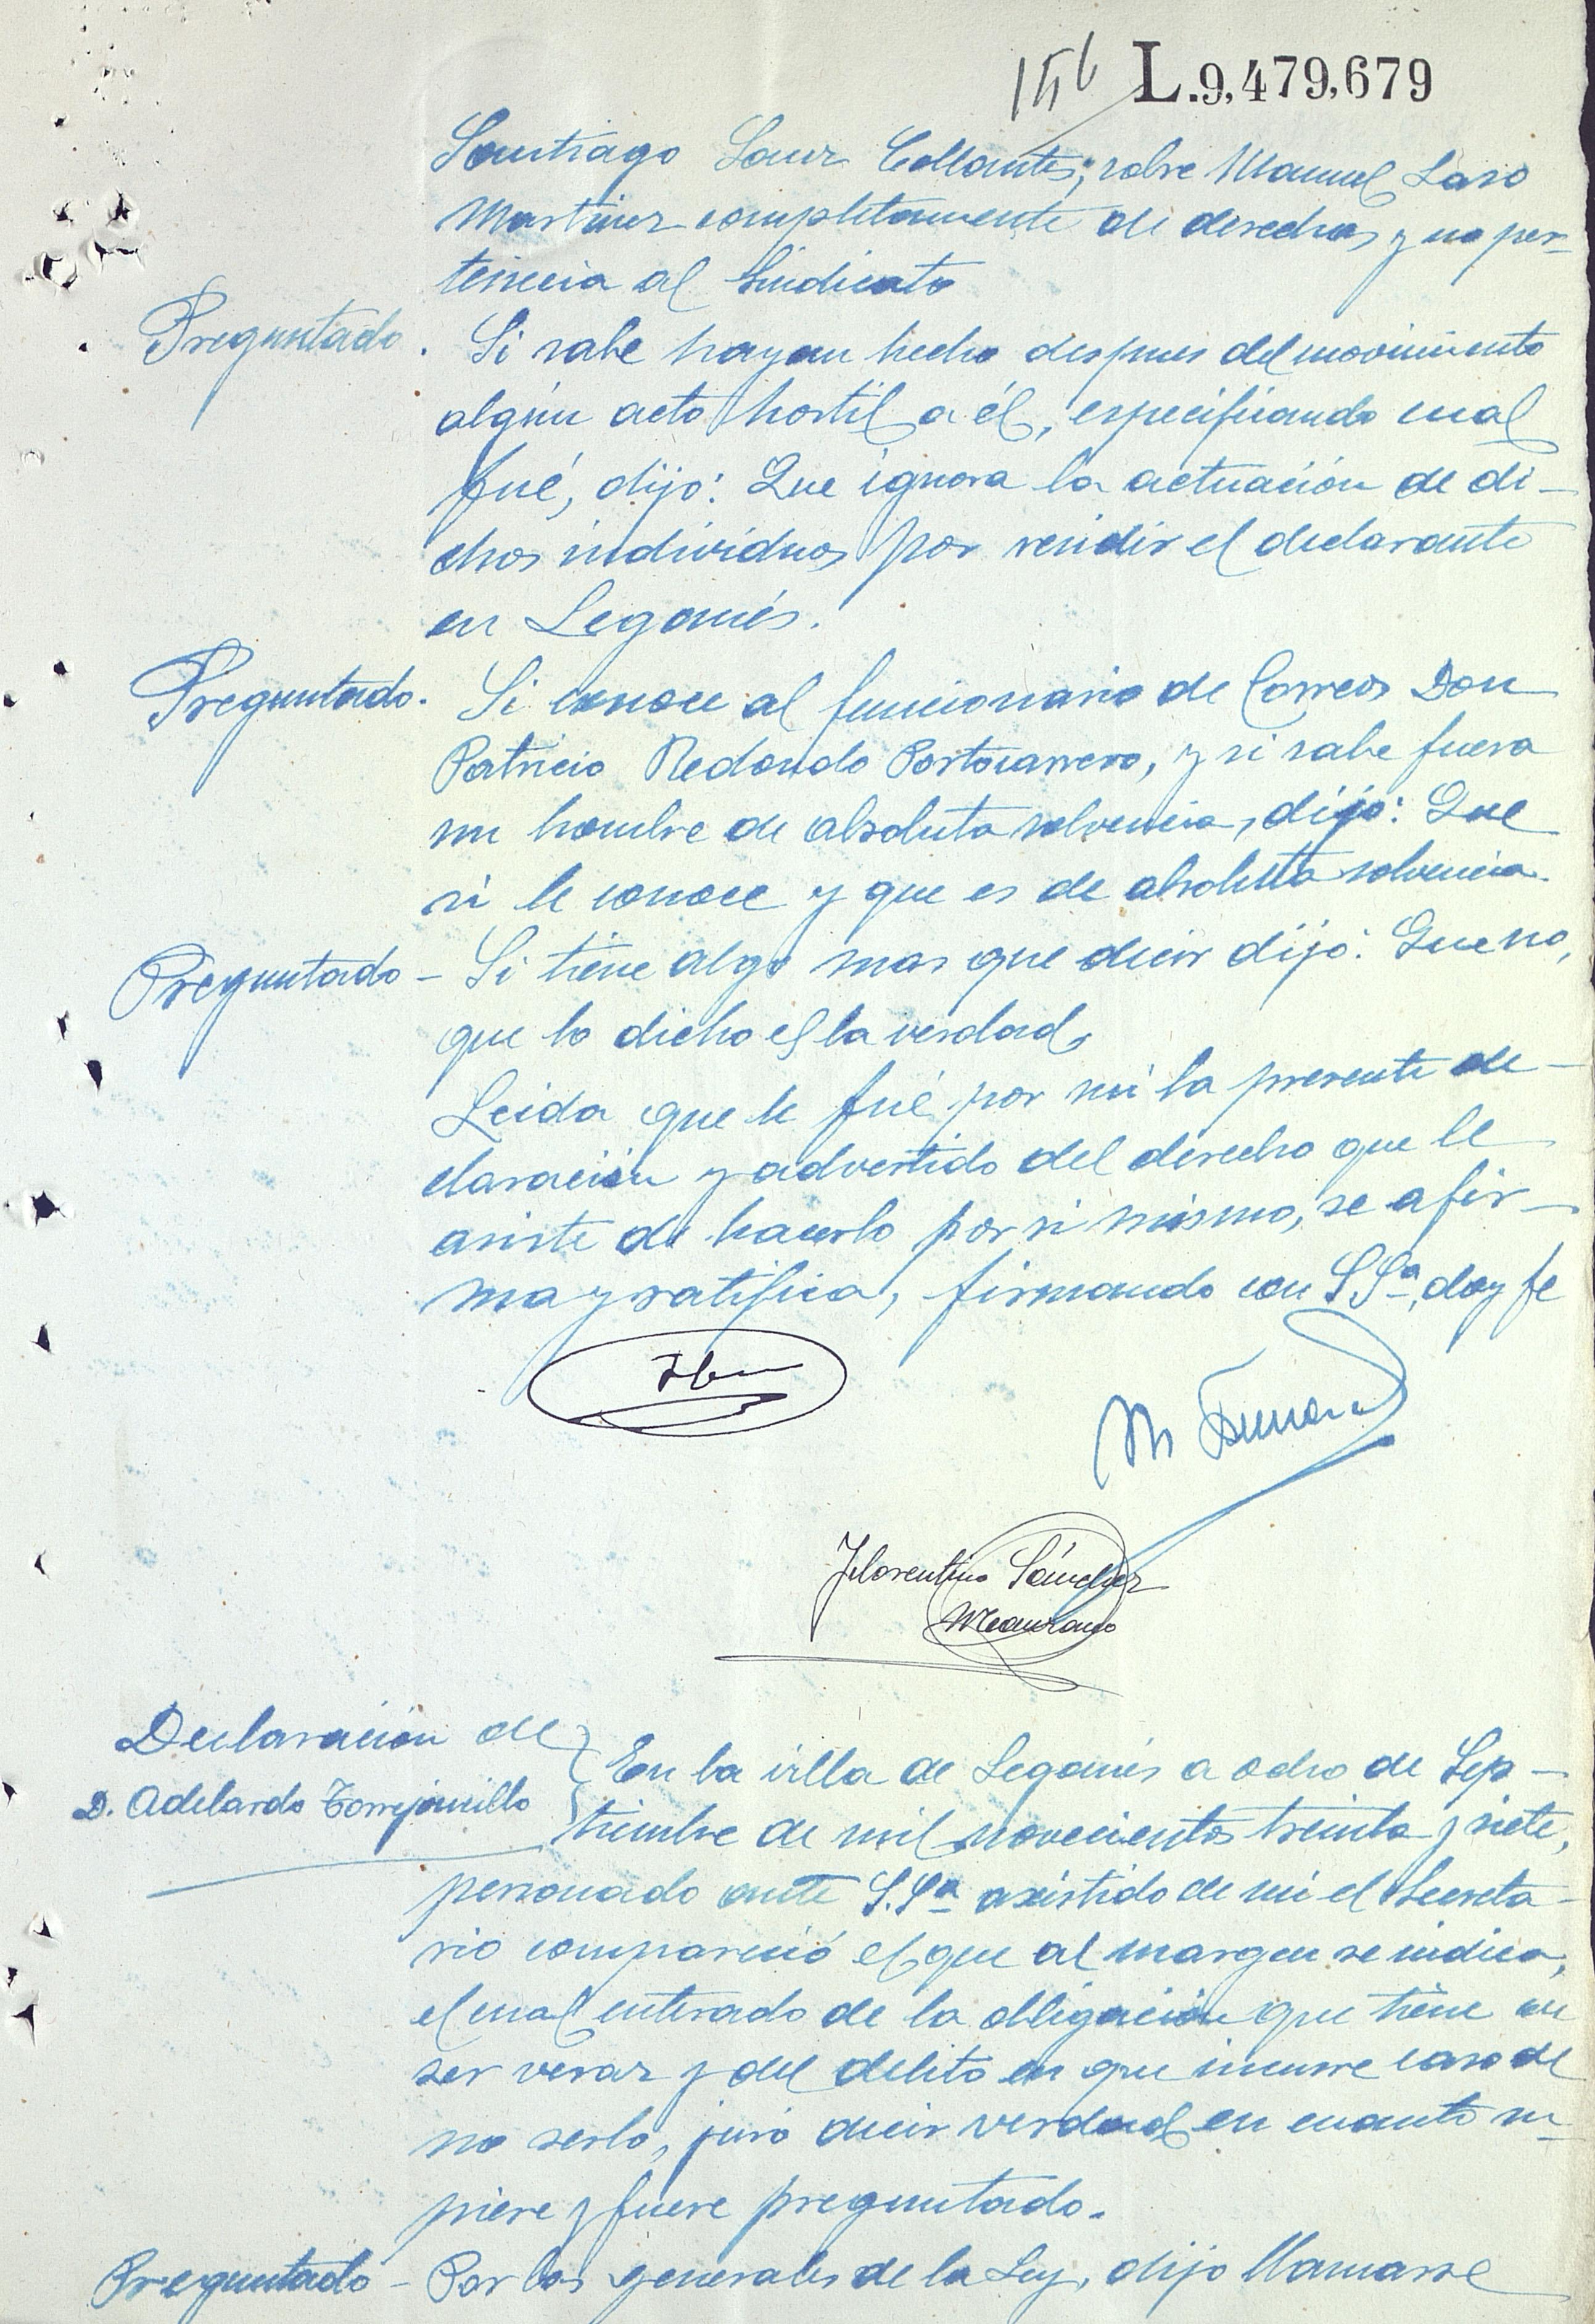 156 L.9,479,679
Santiago Sanz Collantes; sobre Manuel Laso
Martinez completamente de derechas y no per-
tenecia al Sindicato
Preguntado. Si sabe hayan hecho despues del movimiento
algún acto hostil a él, especificando cual
fué, dijo: Que ignora la actuación de di-
chos individuos por residir el declarante
en Leganés.
Preguntado. Si conoce al funcionario de Correos Don
Patricio Redondo Portocarrero, y si sabe fuera
un hombre de absoluta solvencia, dijo: Que
si le conoce y que es de absoluta solvencia.
Preguntado - Si tiene algo mas que decir dijo: Que no,
que lo dicho es la verdad,
Leida que le fué por mi la presente de-
claración y advertido del derecho que le
asiste de hacerlo por si mismo, se afir-
ma y ratifica, firmando con S.Sª, doy fe
Florentino Sánchez
Manzano
Declaración de
D. Adelardo Torrejoncillo
En la villa de Leganés a ocho de Sep-
tiembre de mil novecientos treinta y siete,
personado ante S.Sª asistido de mi el Secreta-
rio compareció el que al margen se indica,
el cual enterado de la obligación que tiene en
ser veraz y del delito en que incurre caso de
no serlo, juró decir verdad en cuanto su-
piere y fuere preguntado.
Preguntado - Por las generales de la Ley, dijo llamarse